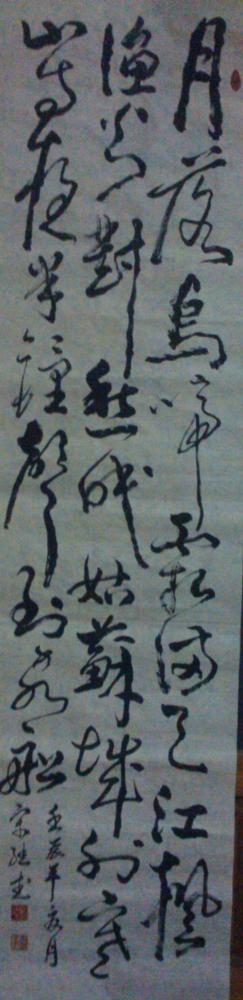 月落烏啼霜滿天江楓
漁火對愁眠姑蘇城外寒
山寺夜半鐘聲到客船
壬辰年月